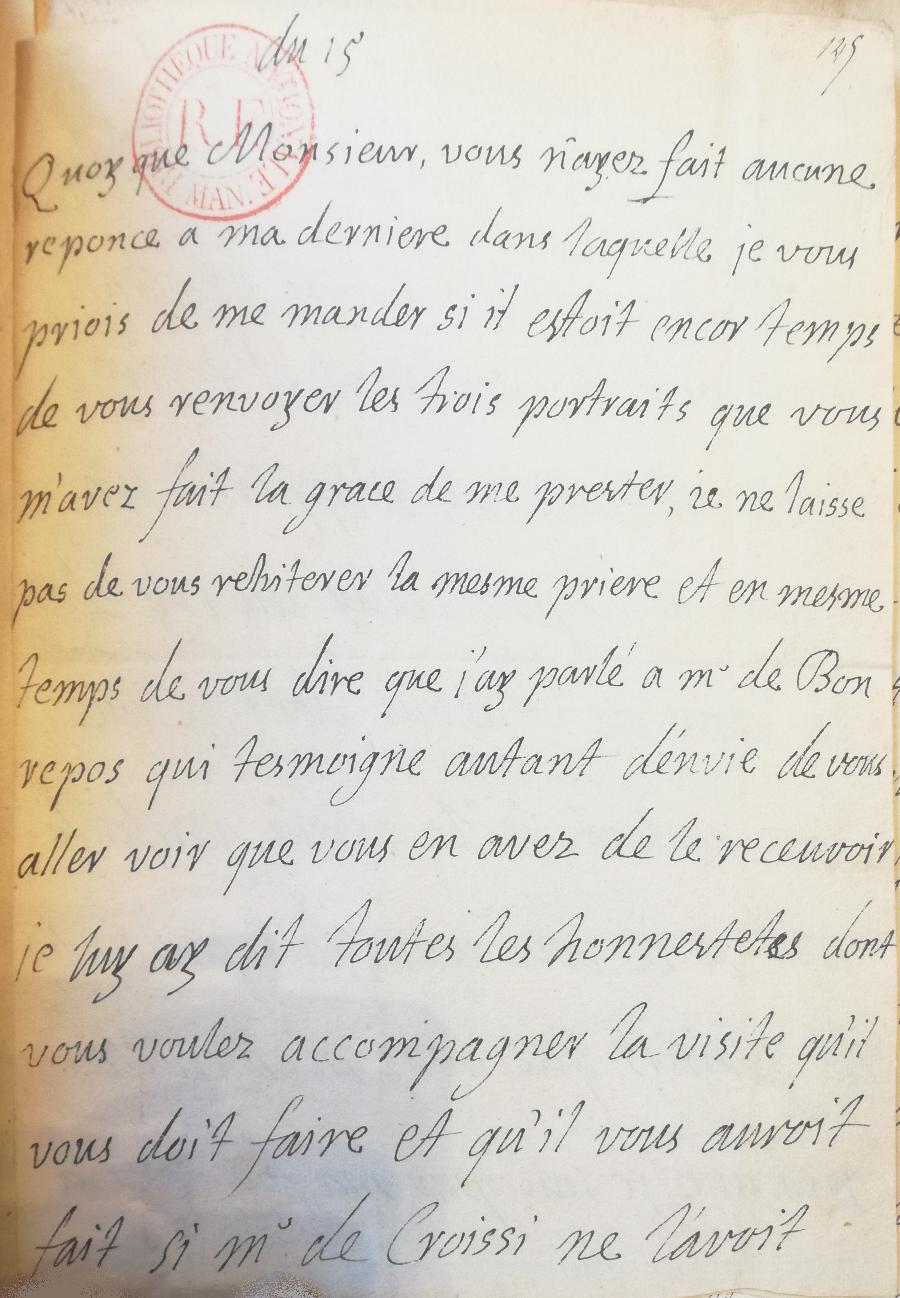 du 15
145
BIBLIOTHEQUE NATIONALE
R F
MAN.
Quoy que Monsieur, vous n'ayez fait aucune
reponce a ma derniere dans laquelle je vous
priois de me mander si il estoit encor temps
de vous renvoyer les trois portraits que vous
m'avez fait la grace de me prester, ie ne laisse
pas de vous rehiterer la mesme priere et en mesme
temps de vous dire que j'ay parlé a mr de Bon
repos qui tesmoigne autant d'envie de vous
aller voir que vous en avez de le receuvoir
ie luy ay dit toutes les honnestetes dont
vous voulez accompagner la visite qu'il
vous doit faire et qu'il vous auroit
fait si mr de Croissi ne l'avoit